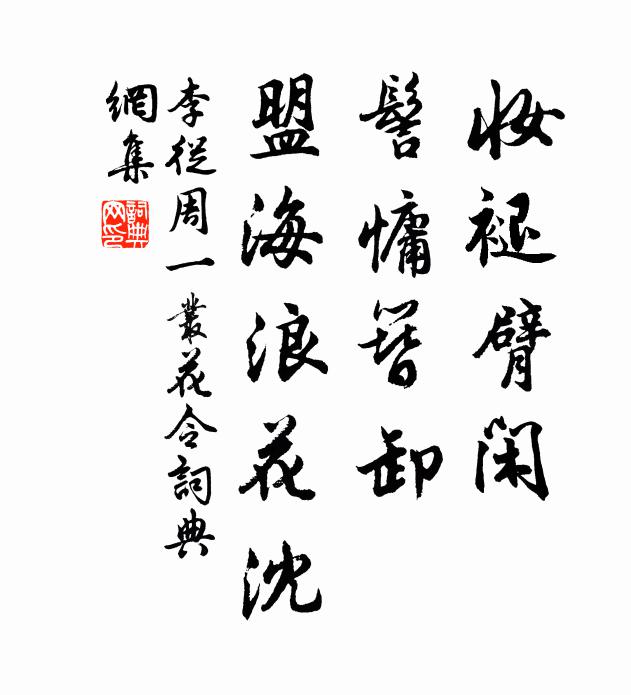 妝褪臂闲
髻慵簪卸
盟海浪花沈
李從周一叢花令詞典
網集
詞典网印